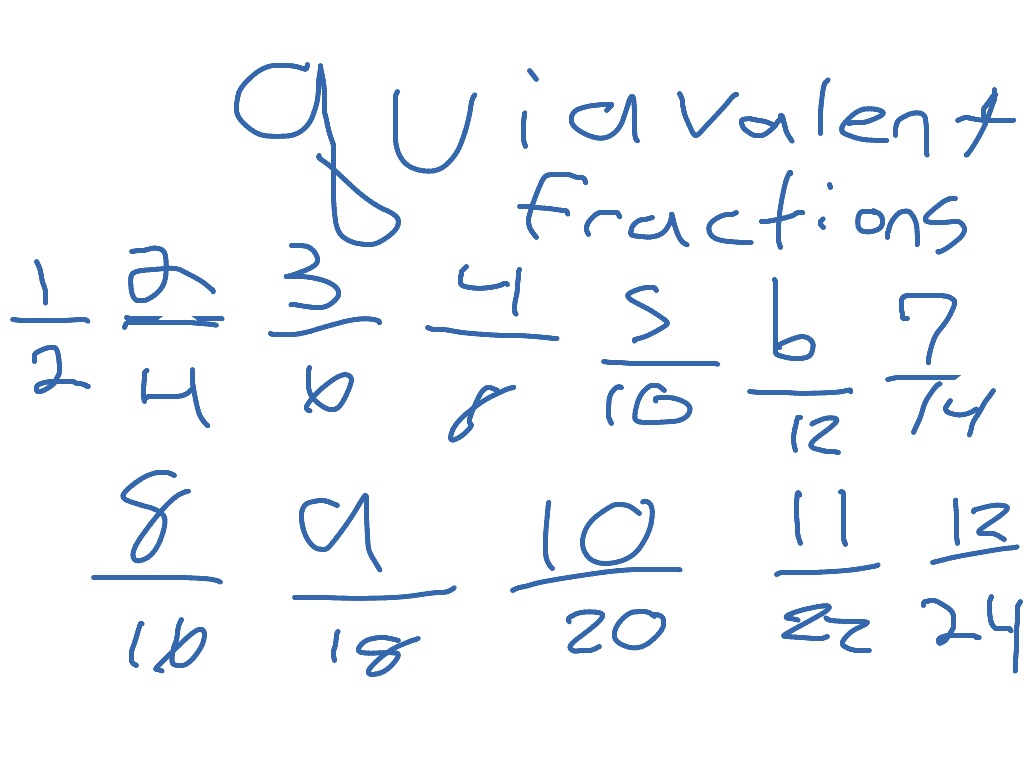 quiavalent
fractions
1/2 2/4 3/6 4/8 5/10 6/12 7/14
8/16 9/18 10/20 11/22 12/24